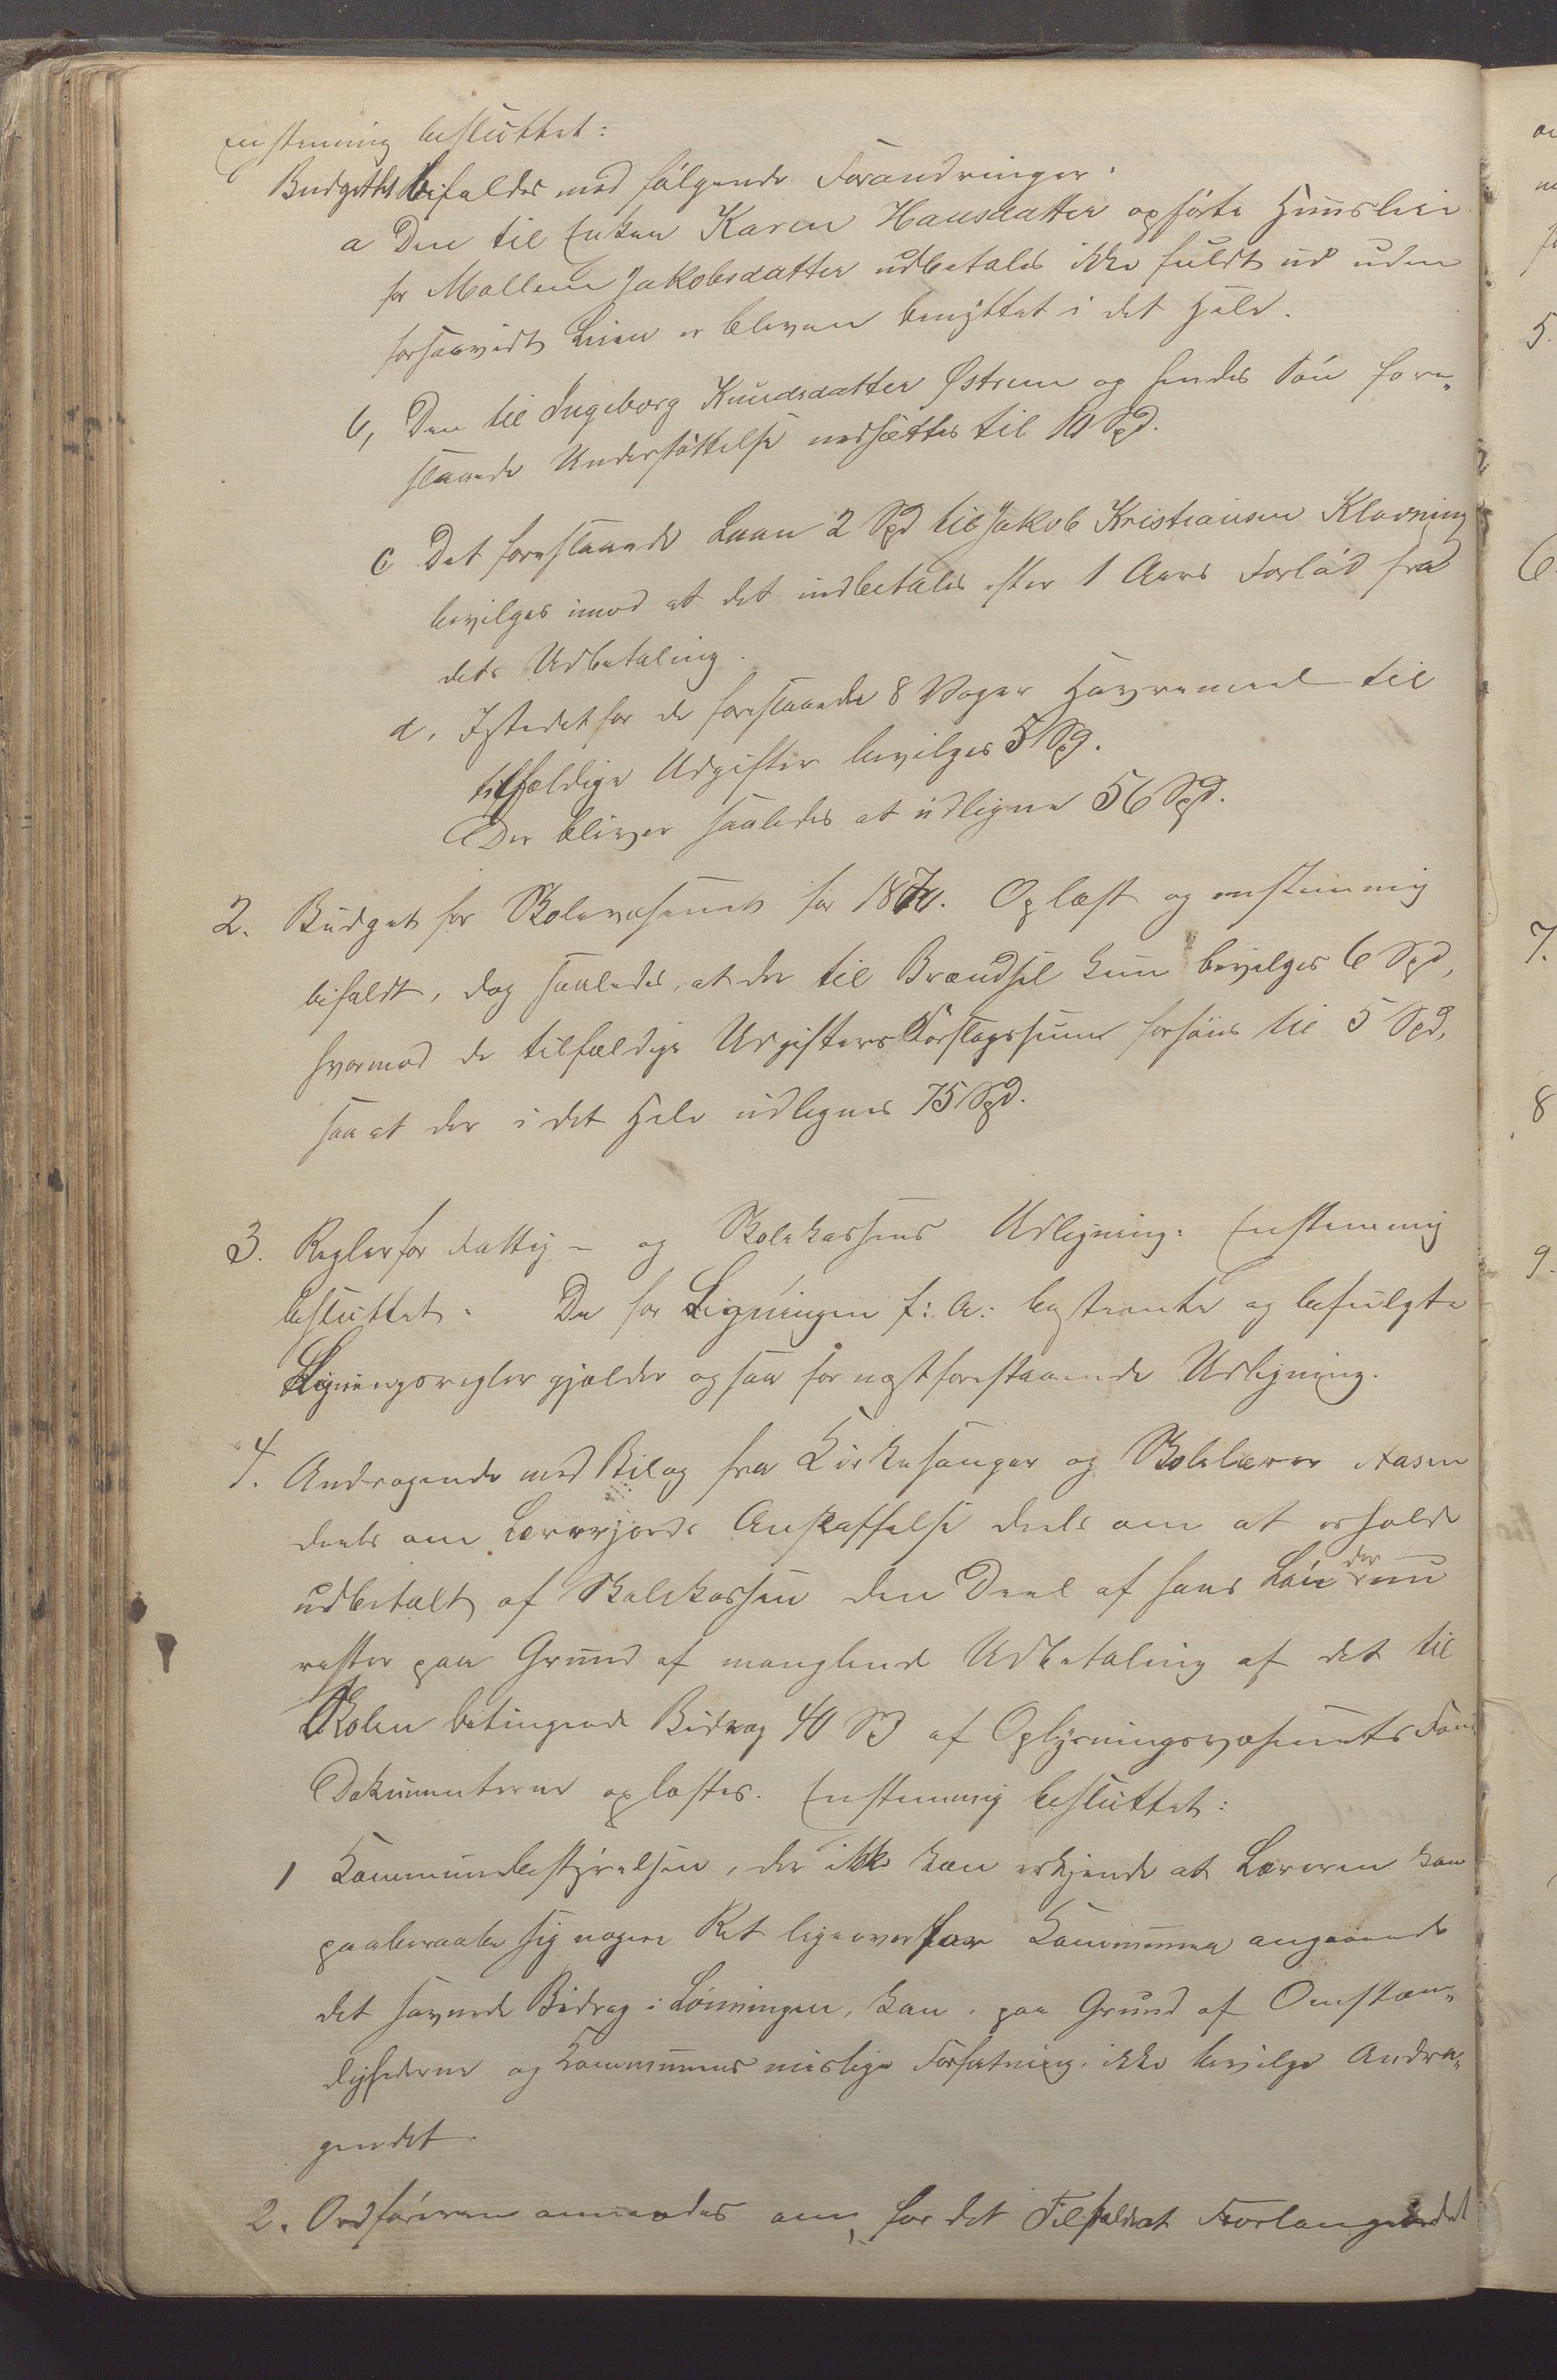 Enstemmig besluttet:
Budgettet bifaldes med følgende Forandringer:
a Den til Enken Karen Hansdatter opførte Huusleie
for Mallene Jakobsdatter udbetales ikke fuldt ud uden
forsaavidt Leien er bleven benyttet i det Hele.
b, Den til Ingeborg Knudsdatter Østrem og hendes Søn fore-
slaaede Understøttelse nedsættes til 10 Spd.
c Det foreslaaede Laan 2 Spd til Jakob Kristiansen Klovning
bevilges imod at det indbetales efter 1 Aars Forløb fra
dets Udbetaling.
d, Istedetfor de foreslaaede 8 Voger Havremeel til
tilfældige Udgifter bevilges 5 Spd.
Der bliver saaledes at udligne 56 Spd.
2. Budget for Skolevæsenet for 1870. Oplæst og enstemmig
bifaldt, dog saaledes, at der til Brændsel kun bevilges 6 Spd,
hvormod de tilfældige Udgifters Forslagssum forhøies til 5 Spd,
saa at der i det Hele udlignes 75 Spd.
3. Regler for Fattig- og Skolekassens Udligning. Enstemmig
besluttet: De for Ligningen f: A: bestemte og befulgte
Ligningsregler gjælder ogsaa for næstforestaaende Udligning.
4. Andragende med Bilag fra Kirkesanger og Skolelærer Aasen
deels om Lærerjords Anskaffelse deels om at erholde
udbetalt af Skolekassen den Deel af hans Løn der nu
rester paa Grund af manglende Udbetaling af det til
Skolen betingede Bidrag 40 Spd af Oplysningsvæsenets Fond
Dokumenterne oplæstes. Enstemmig besluttet:
1 Kommunebestyrelsen, der ikke kan erkjende at Læreren kan
paaberaabe sig nogen Ret ligeoverfor Kommunen angaaende
det savnede Bidrag i Lønningen, kan, paa Grund af Omstæn-
dighederne og Kommunens mislige Forfatning, ikke bevilge Andra-
gendet.
2. Ordføreren anmodes om, for det Tilfælde at Forlangendet